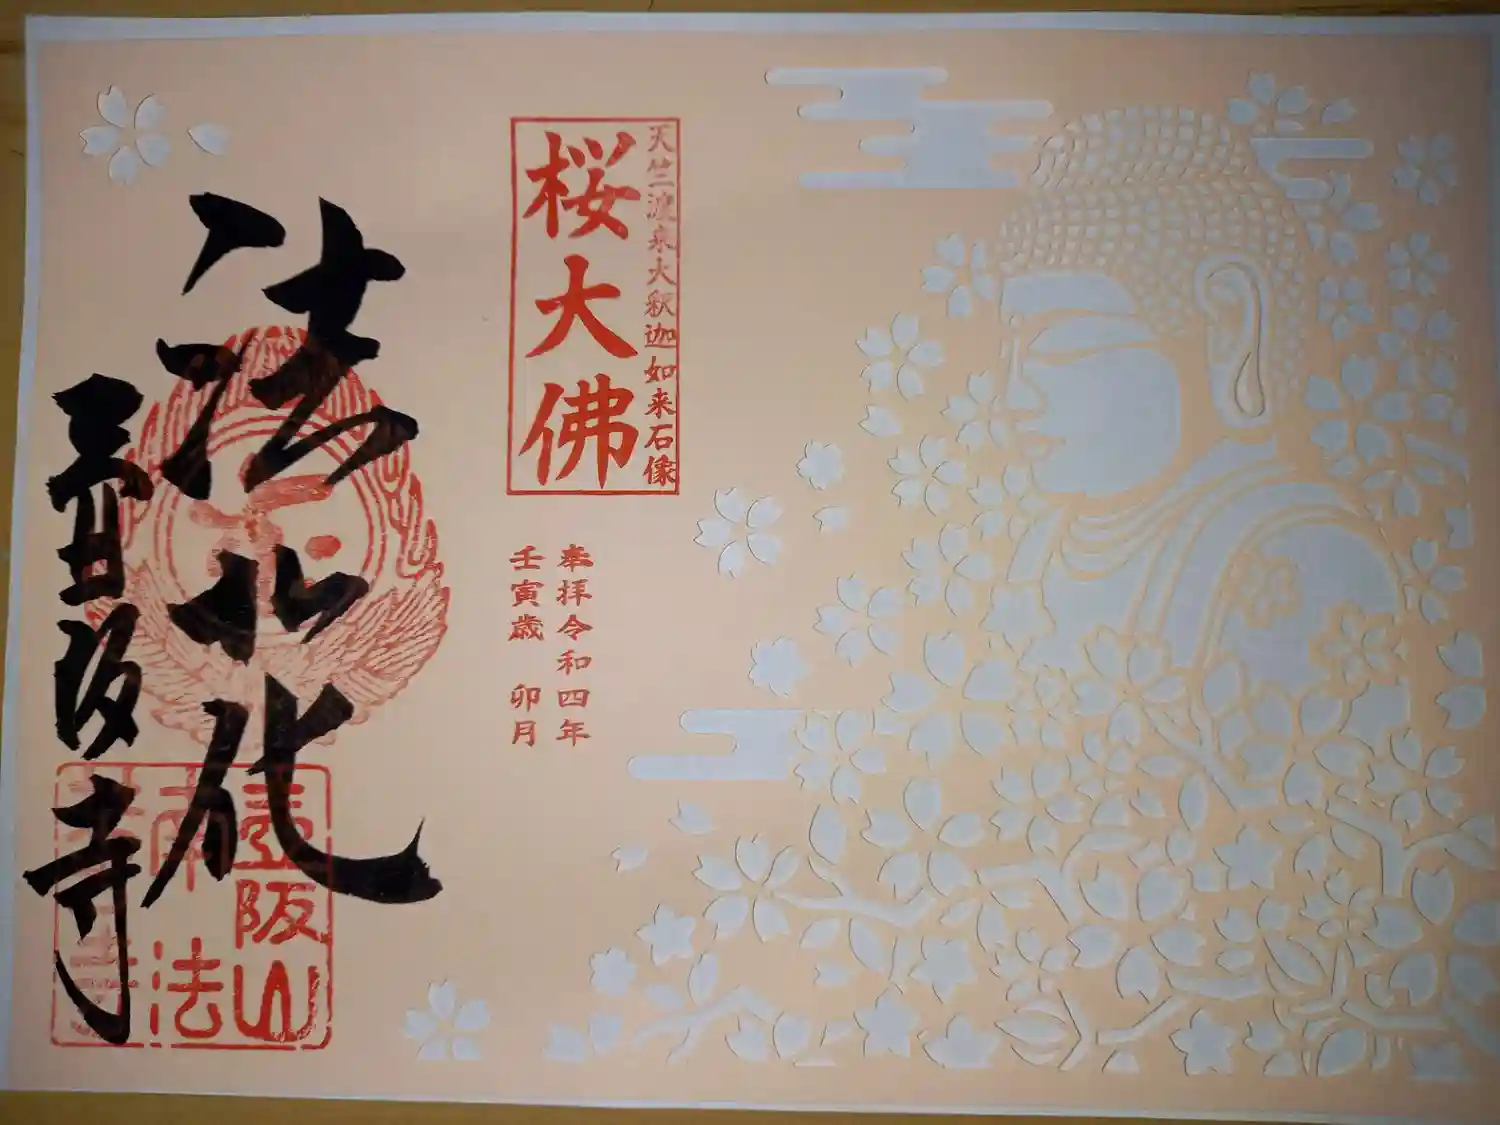 天竺渡来大釈迦如来石像
桜大佛
奉拝令和四年
壬寅歳 卯月
法北化
壷阪寺
壷阪山
南法
華寺